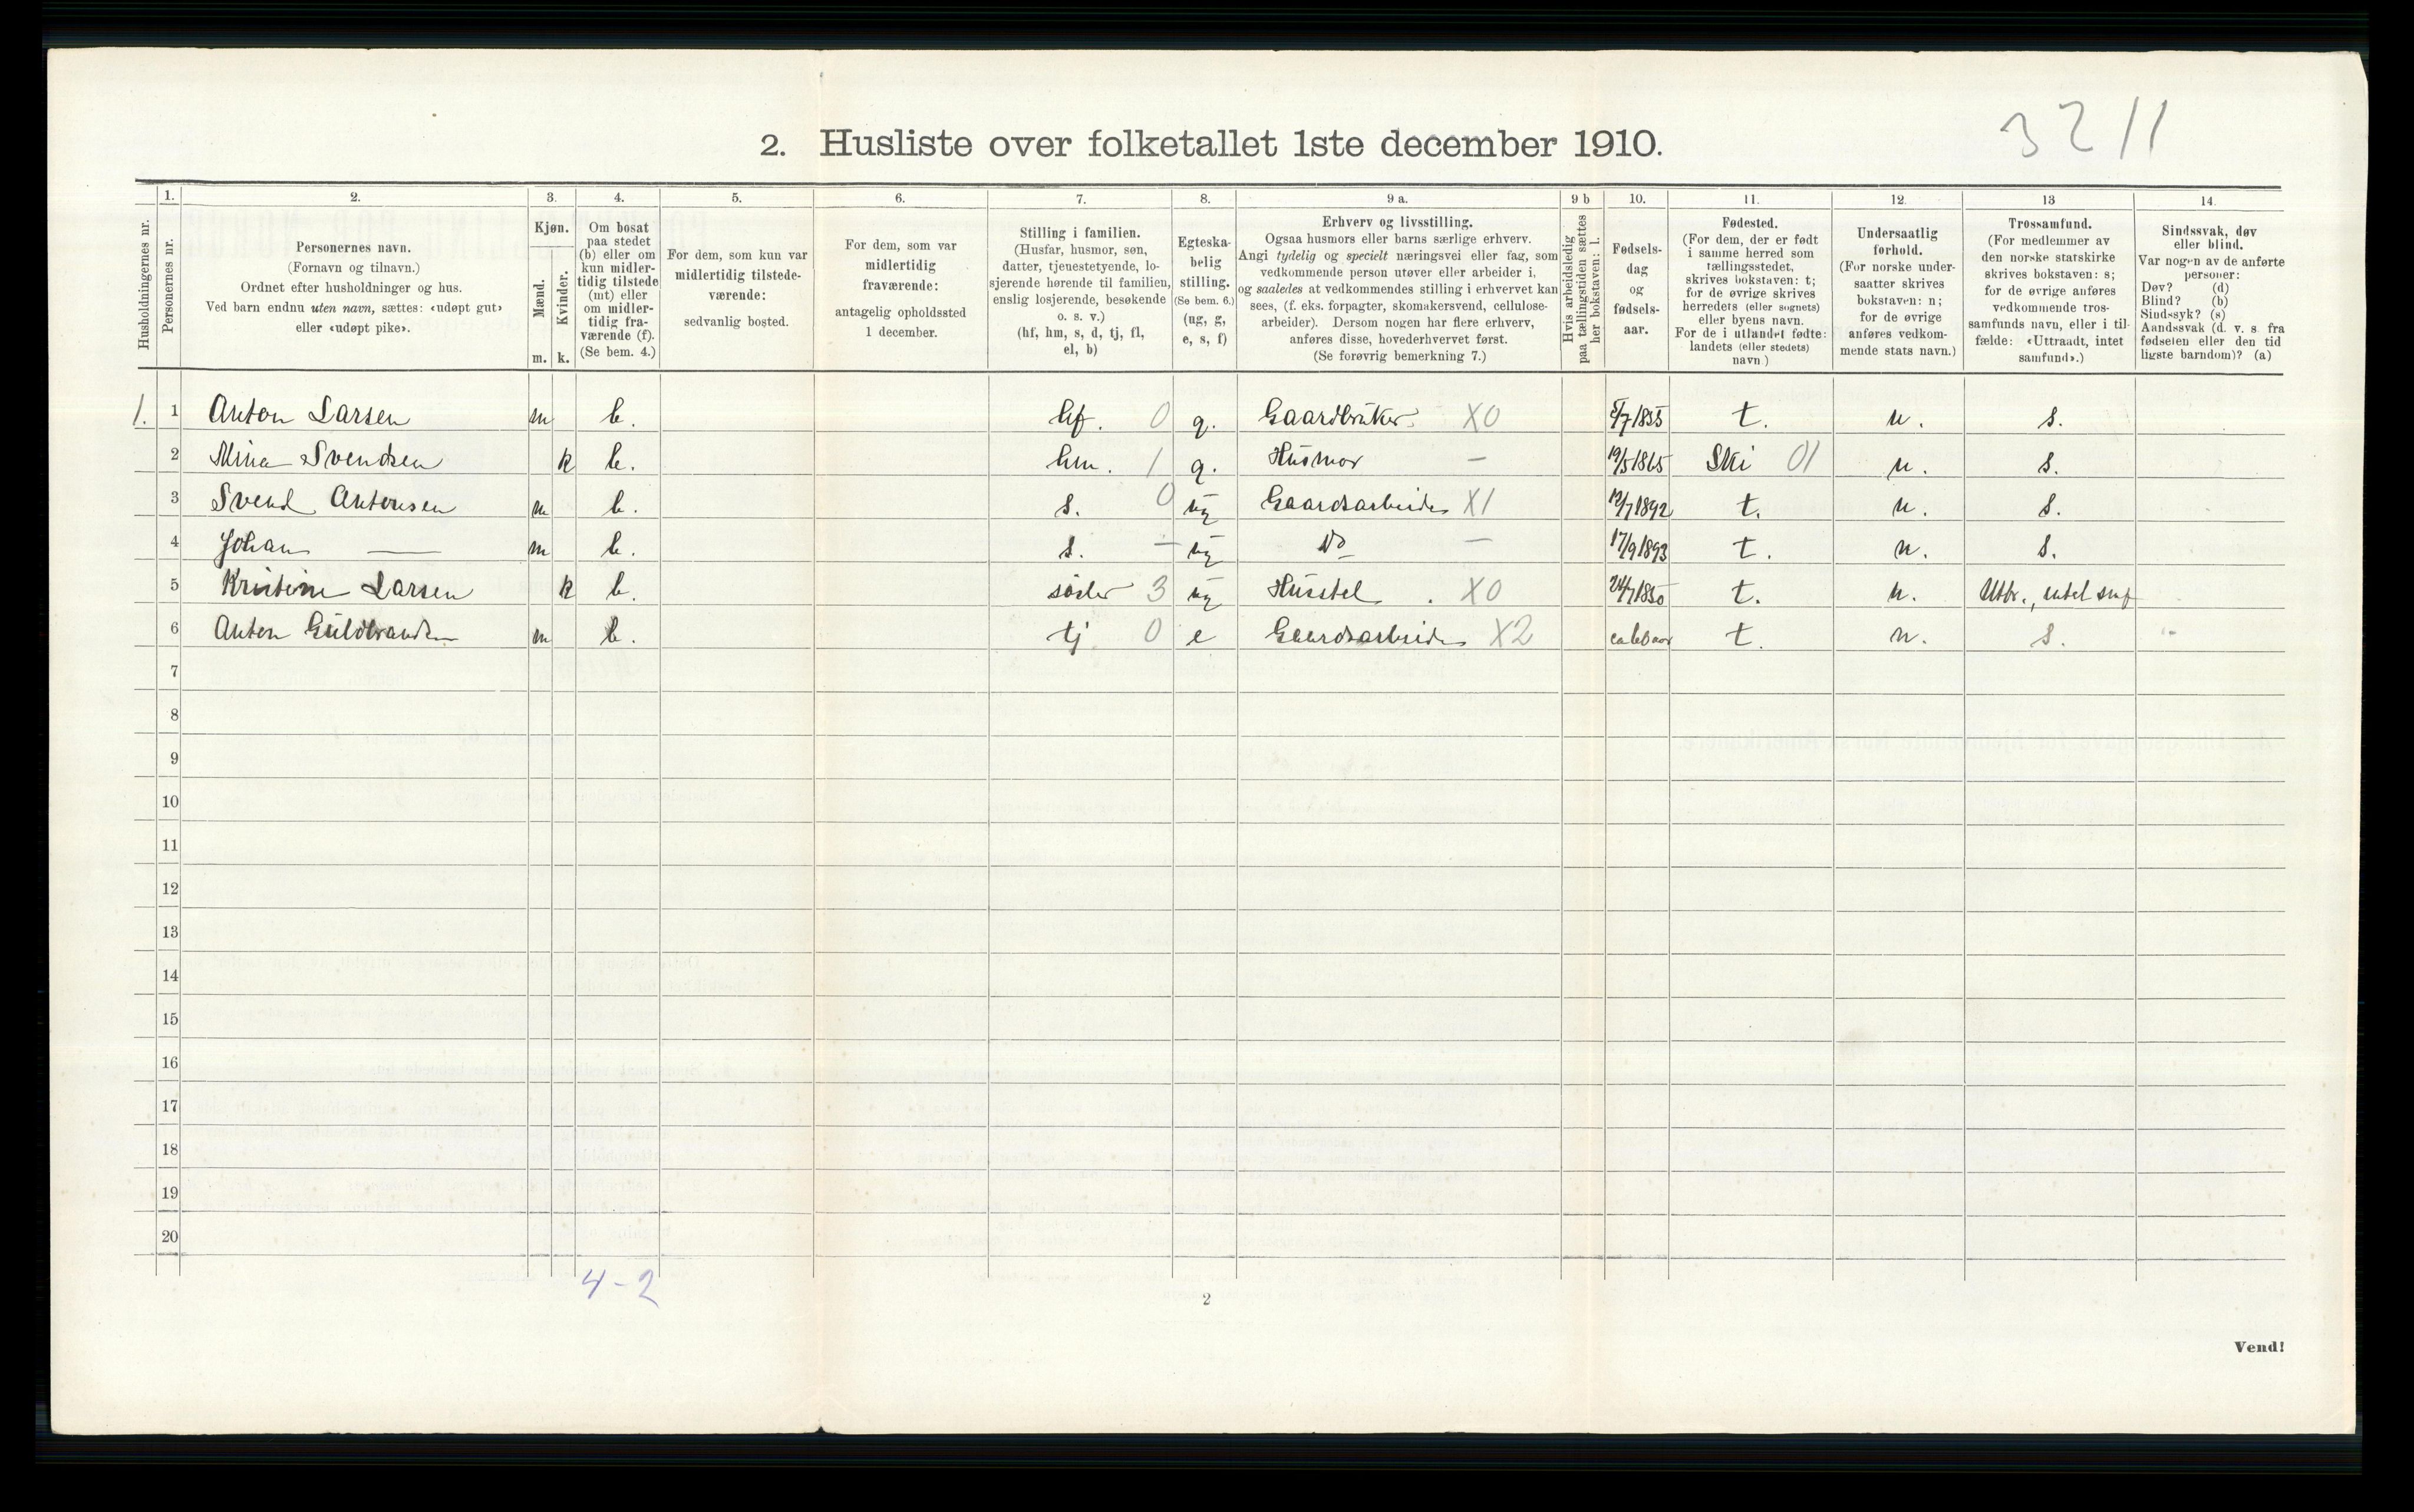 3211
2. Husliste over folketallet 1ste december 1910.
Husholdningernes nr.
1. Personernes nr.
2. Personernes navn.
(Fornavn og tilnavn.)
Ordnet efter husholdninger og hus.
Ved barn endnu uten navn, sættes: «udøpt gut»
eller «udøpt pike».
3. Kjøn.
Mænd. m.
Kvinder. k.
4. Om bosat
paa stedet
(b) eller om
kun midler-
tidig tilstede
(mt) eller
om midler-
tidig fra-
værende (f).
(Se bem. 4.)
5. For dem, som kun var
midlertidig tilstede-
værende:
sedvanlig bosted.
6. For dem, som var
midlertidig
fraværende:
antagelig opholdssted
1 december.
7. Stilling i familien.
(Husfar, husmor, søn,
datter, tjenestetyende, lo-
sjerende hørende til familien,
enslig losjerende, besøkende
o. s. v.)
(hf, hm, s, d, tj, fl,
el, b)
8. Egteska-
belig
stilling.
(Se bem. 6.)
(ug, g,
e, s, f)
9 a. Erhverv og livsstilling.
Ogsaa husmors eller barns særlige erhverv.
Angi tydelig og specielt næringsvei eller fag, som
vedkommende person utøver eller arbeider i,
og saaledes at vedkommendes stilling i erhvervet kan
sees, (f. eks. forpagter, skomakersvend, cellulose-
arbeider). Dersom nogen har flere erhverv,
anføres disse, hovederhvervet først.
(Se forøvrig bemerkning 7.)
9 b Hvis arbeidsledig
paa tællingstiden sættes
her bokstaven: l.
10. Fødsels-
dag
og
fødsels-
aar.
11. Fødested.
(For dem, der er født
i samme herred som
tællingsstedet,
skrives bokstaven: t;
for de øvrige skrives
herredets (eller sognets)
eller byens navn.
For de i utlandet fødte:
landets (eller stedets)
navn.)
12. Undersaatlig
forhold.
(For norske under-
saatter skrives
bokstaven: n;
for de øvrige
anføres vedkom-
mende stats navn.)
13 Trossamfund.
(For medlemmer av
den norske statskirke
skrives bokstaven: s;
for de øvrige anføres
vedkommende tros-
samfunds navn, eller i til-
fælde: «Uttraadt, intet
samfund».)
14. Sindssvak, døv
eller blind.
Var nogen av de anførte
personer:
Døv? (d)
Blind? (b)
Sindssyk? (s)
Aandssvak (d. v. s. fra
fødselen eller den tid
ligste barndom)? (a)
1. 1 Anton Larsen m b. hf. 0 g. Gaardbruker X0 5/7 1855 t. n. s.
2 Mina Svendsen k b. hm. 1 g. Husmor — 19/5 1865 Ski 01 n. s.
3 Svend Antonsen m b. s. 0 ug Gaardsarbeider X1 12/7 1892 t. n. s.
4 Johan — m b. s. — ug Do — 17/9 1893 t. n. s.
5 Kristine Larsen k b. søster 3 ug Husstel . X0 24/7 1850 t. n. Utr., intet smf
6 Anton Guldbrandsen m b. tj 0 e Gaardsarbeider X2 ca 60 aar t. n. s.
7
8
9
10
11
12
13
14
15
16
17
18
19
20
4-2
2
Vend!